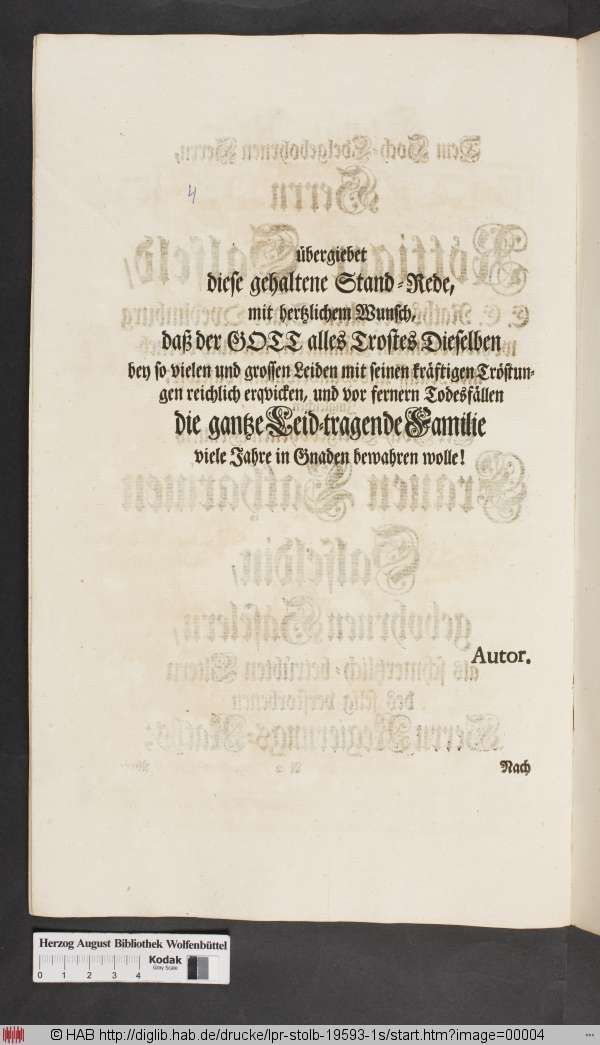 4
übergiebet
diese gehaltene Stand-Rede,
mit hertzlichem Wunsch,
daß der GOTT alles Trostes Dieselben
bey so vielen und grossen Leiden mit seinen kräftigen Tröstun-
gen reichlich erqvicken, und vor fernern Todesfällen
die gantze Leid-tragende Familie
viele Jahre in Gnaden bewahren wolle!
Autor.
Nach
Herzog August Bibliothek Wolfenbüttel
0 1 2 3 4
Kodak
Gray Scale
© HAB http://diglib.hab.de/drucke/lpr-stolb-19593-1s/start.htm?image=00004